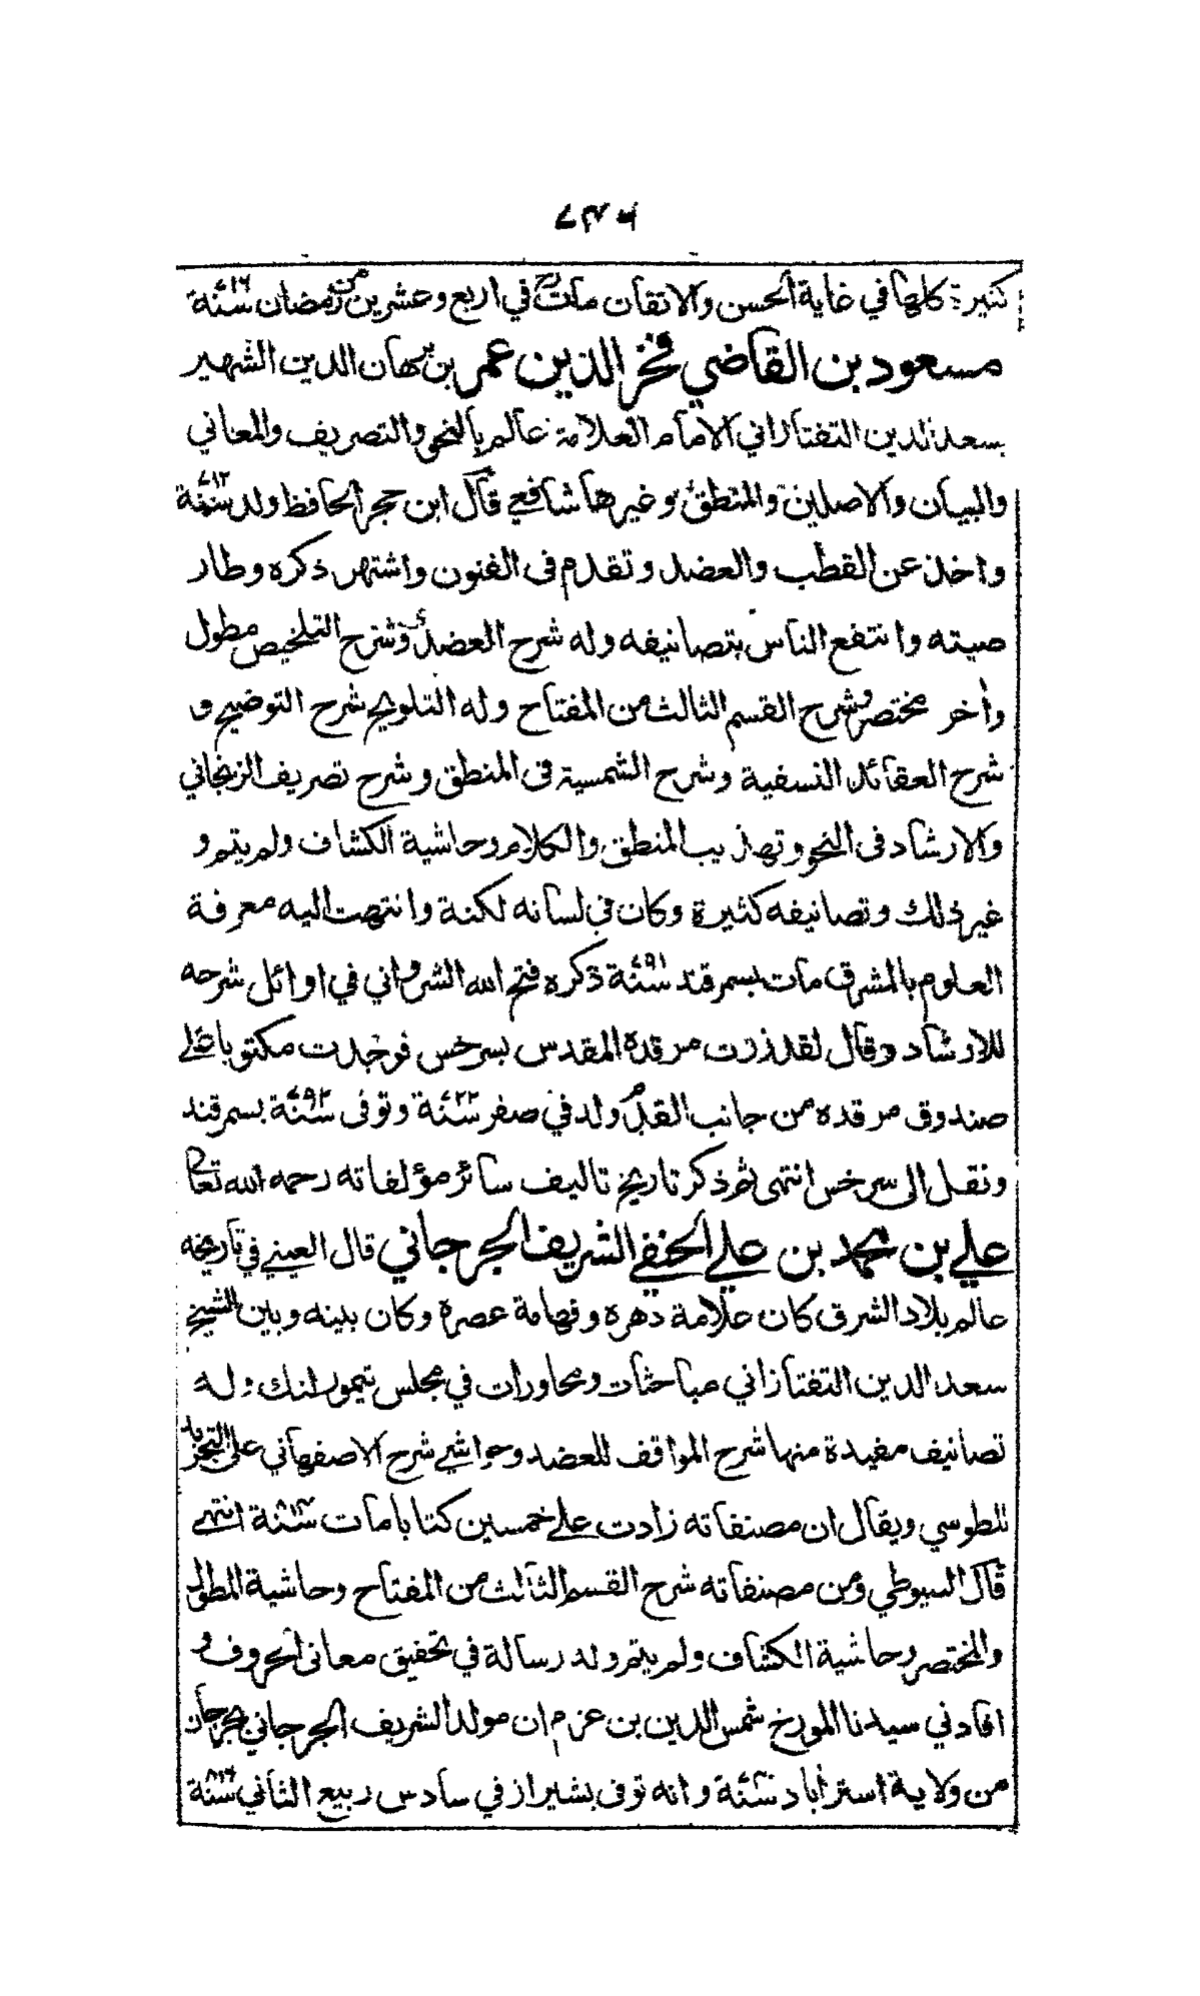 كثيرة كلها في غاية الحسن والاتقان مات في اربع وعشرين من رمضان سنة
مسعود بن القاضي فخر الدين عمر بن برهان الدين الشهير
بسعد الدين التفتازاني الامام العلامة عالم بالنحو والتصريف والمعاني
والبيان والاصلين والمنطق وغيرها شافعي قال ابن حجر الحافظ ولد سنة ٧١٢
واخذ عن القطب والعضد وتقدم في الفنون واشتهر ذكره وطار
صيته وانتفع الناس بتصانيفه وله شرح العضد وشرح التلخيص مطول
وأخر مختصر وشرح القسم الثالث من المفتاح وله التلويح شرح التوضيح و
شرح العقائد النسفية وشرح الشمسية في المنطق وشرح تصريف الزنجاني
والارشاد في النحو وتهذيب المنطق والكلام وحاشية الكشاف ولم يتم و
غير ذلك وتصانيفه كثيرة وكان في لسانه لكنة وانتهت اليه معرفة
العلوم بالمشرق مات بسمرقند سنة ٧٩١ ذكره فتح الله الشرواني في اوائل شرحه
للارشاد وقال لقد زرت مرقده المقدس بسرخس فوجدت مكتوبا على
صندوق مرقده من جانب القدم ولد في صفر سنة ٧٢٢ وتوفى سنة ٧٩٢ بسمرقند
ونقل الى سرخس انتهى ثم ذكر تاريخ تاليف سائر مؤلفاته رحمه الله تعالى
علي بن محمد بن علي الحنفي الشريف الجرجاني قال العيني في تأريخه
عالم بلاد الشرق كان علامة دهره وفهامة عصره وكان بينه وبين الشيخ
سعد الدين التفتازاني مباحثات ومحاورات في مجلس تيمور لنك وله
تصانيف مفيدة منها شرح المواقف للعضد وحواشي شرح الاصفهاني على التجريد
للطوسي ويقال ان مصنفاته زادت على خمسين كتابا مات سنة انتهى
قال السيوطي ومن مصنفاته شرح القسم الثالث من المفتاح وحاشية المطول
والمختصر وحاشية الكشاف ولم يتم وله رسالة في تحقيق معاني الحروف و
افادني سيدنا المورخ شمس الدين بن عزم ان مولد الشريف الجرجاني بجرجان
من ولاية استرأباد سنة وانه توفى بشيراز في سادس ربيع الثاني سنة ٨١٦